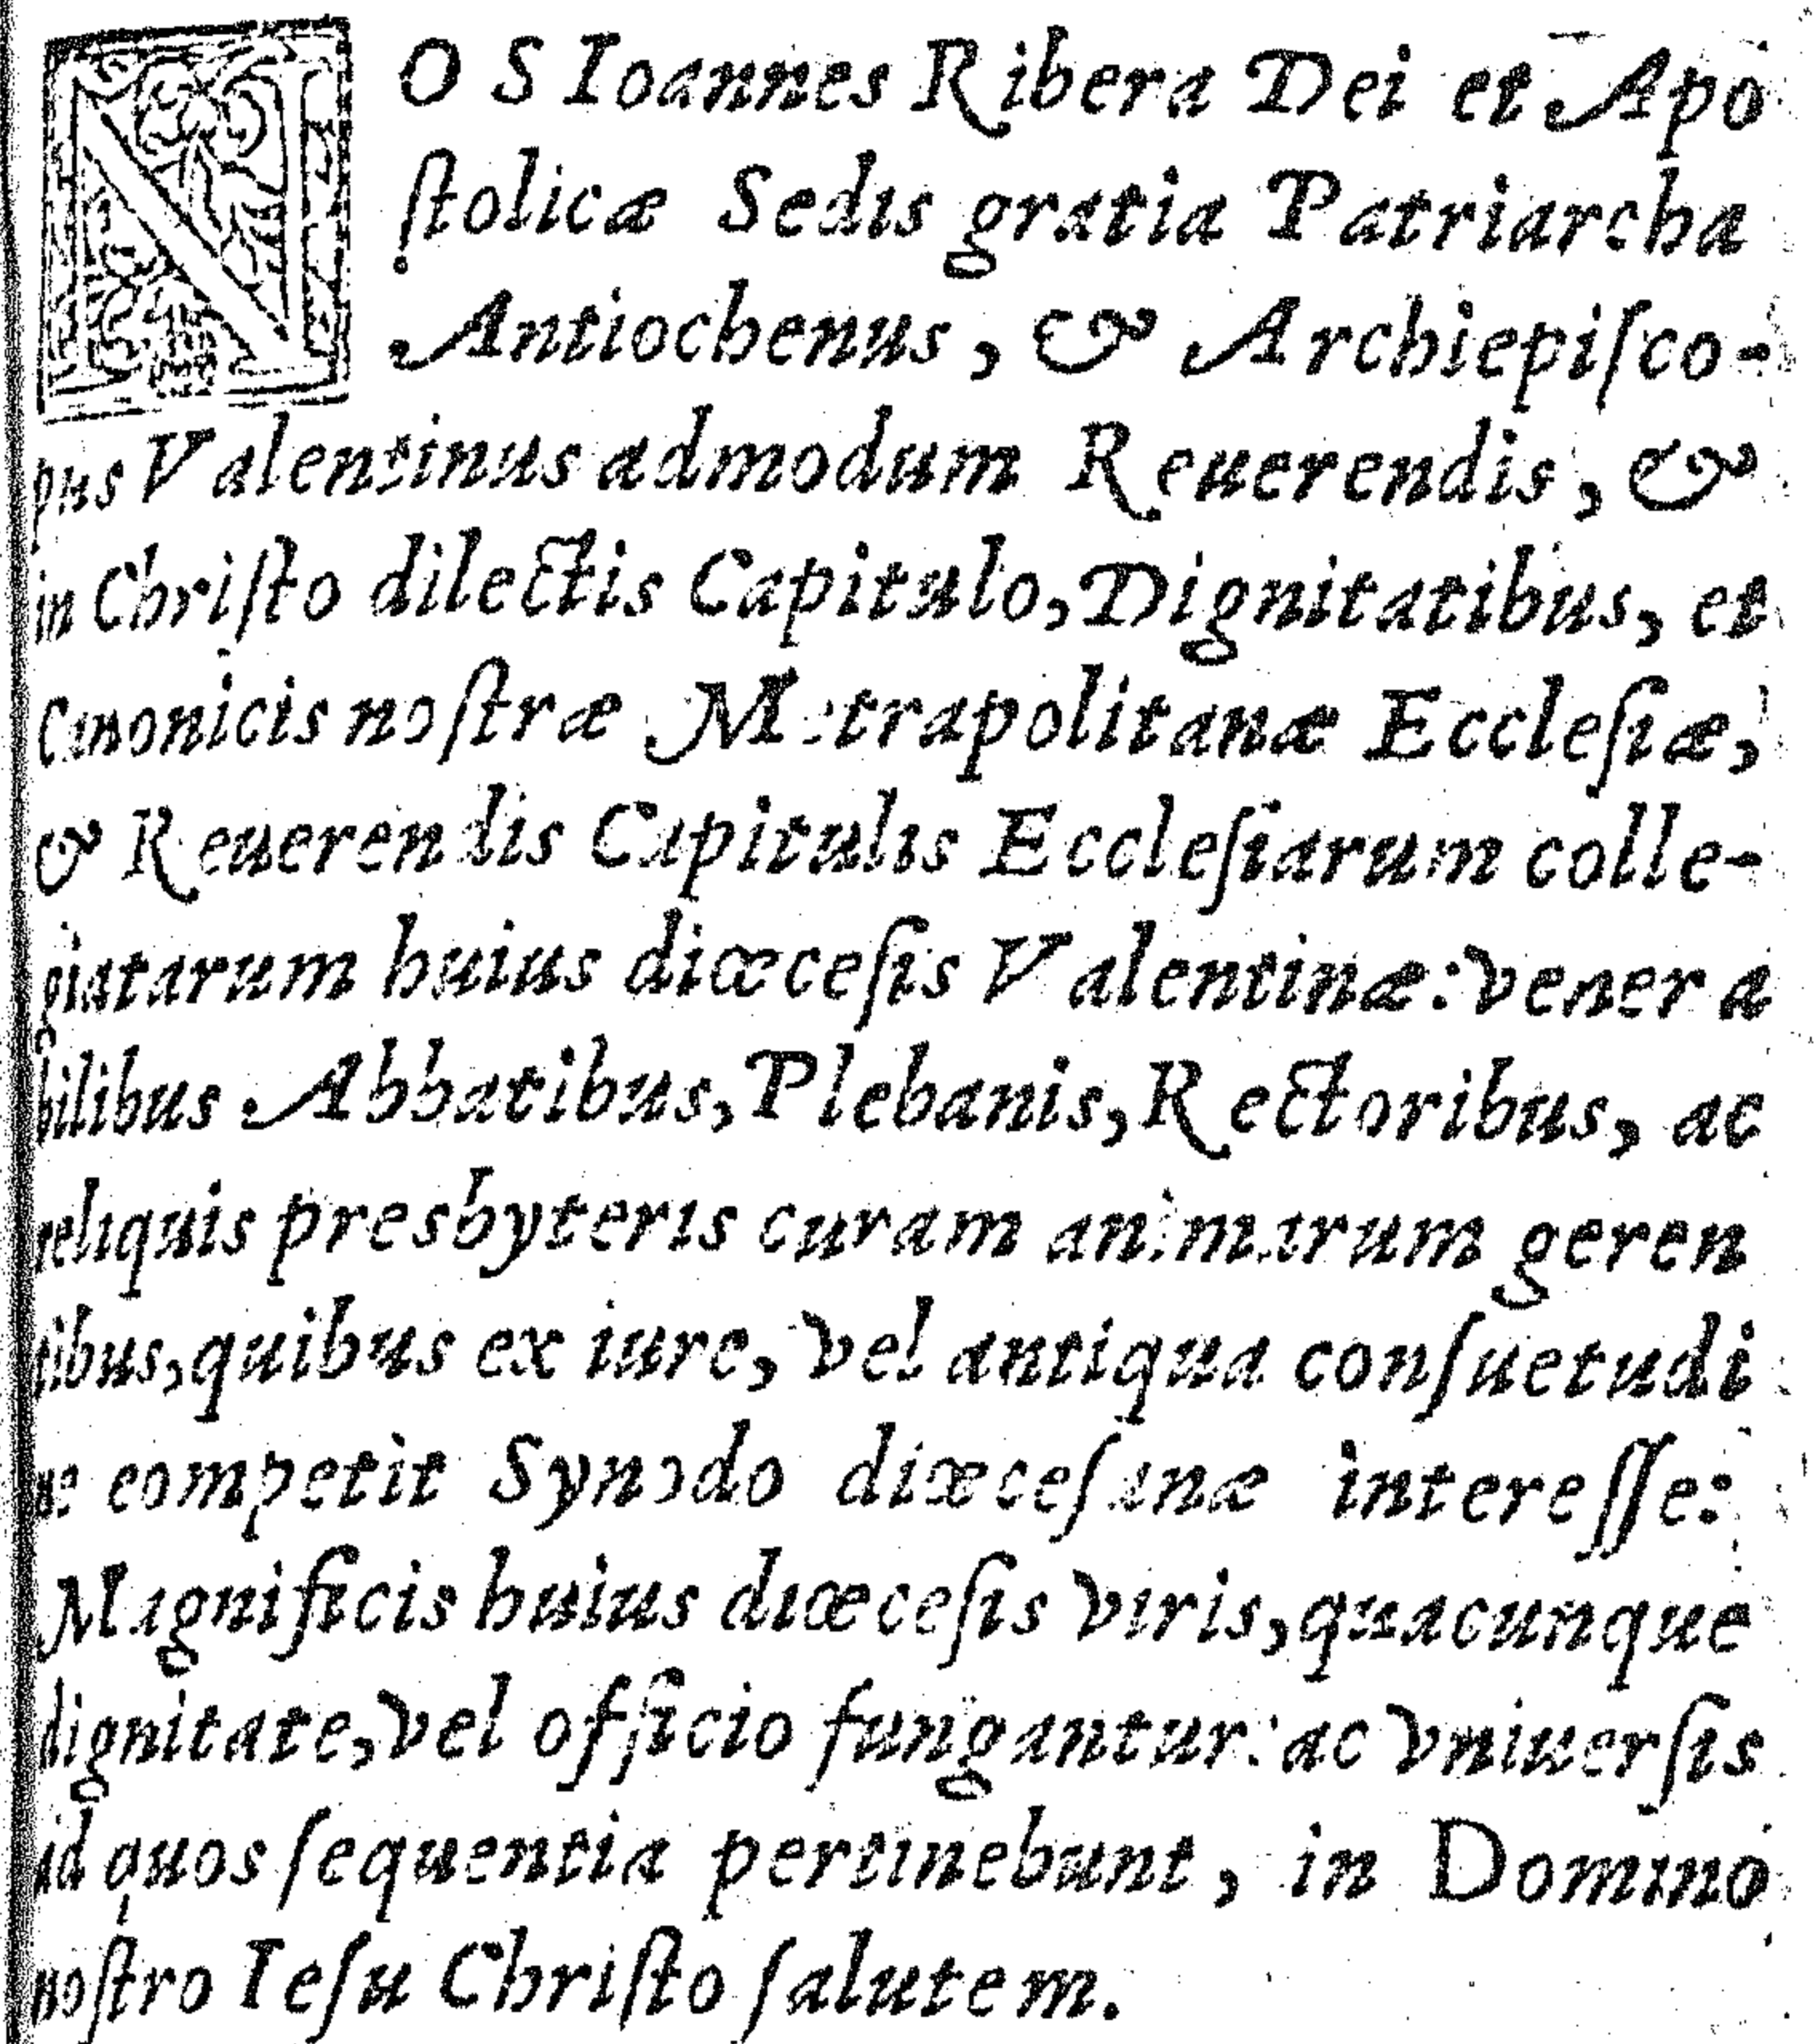 NOS Ioannes Ribera Dei et Apo
ſtolicæ Sedis gratia Patriarcha
Antiochenus, & Archiepiſco-
pus Valentinus admodum Reuerendis, &
in Chriſto dilectis Capitulo, Dignitatibus, et
Canonicis noſtræ Metrapolitanæ Eccleſiæ,
& Reuerendis Capitulis Eccleſiarum colle-
giatarum huius diœceſis Valentinæ: venera
bilibus Abbatibus, Plebanis, Rectoribus, ac
reliquis presbyteris curam animarum geren
tibus, quibus ex iure, vel antiqua conſuetudi
ne competit Synodo diœceſanæ intereſſe:
Magnificis huius diœceſis viris, quacunque
dignitate, vel officio fungantur: ac vniuerſis
ad quos ſequentia pertinebunt, in Domino
noſtro Ieſu Chriſto ſalutem.